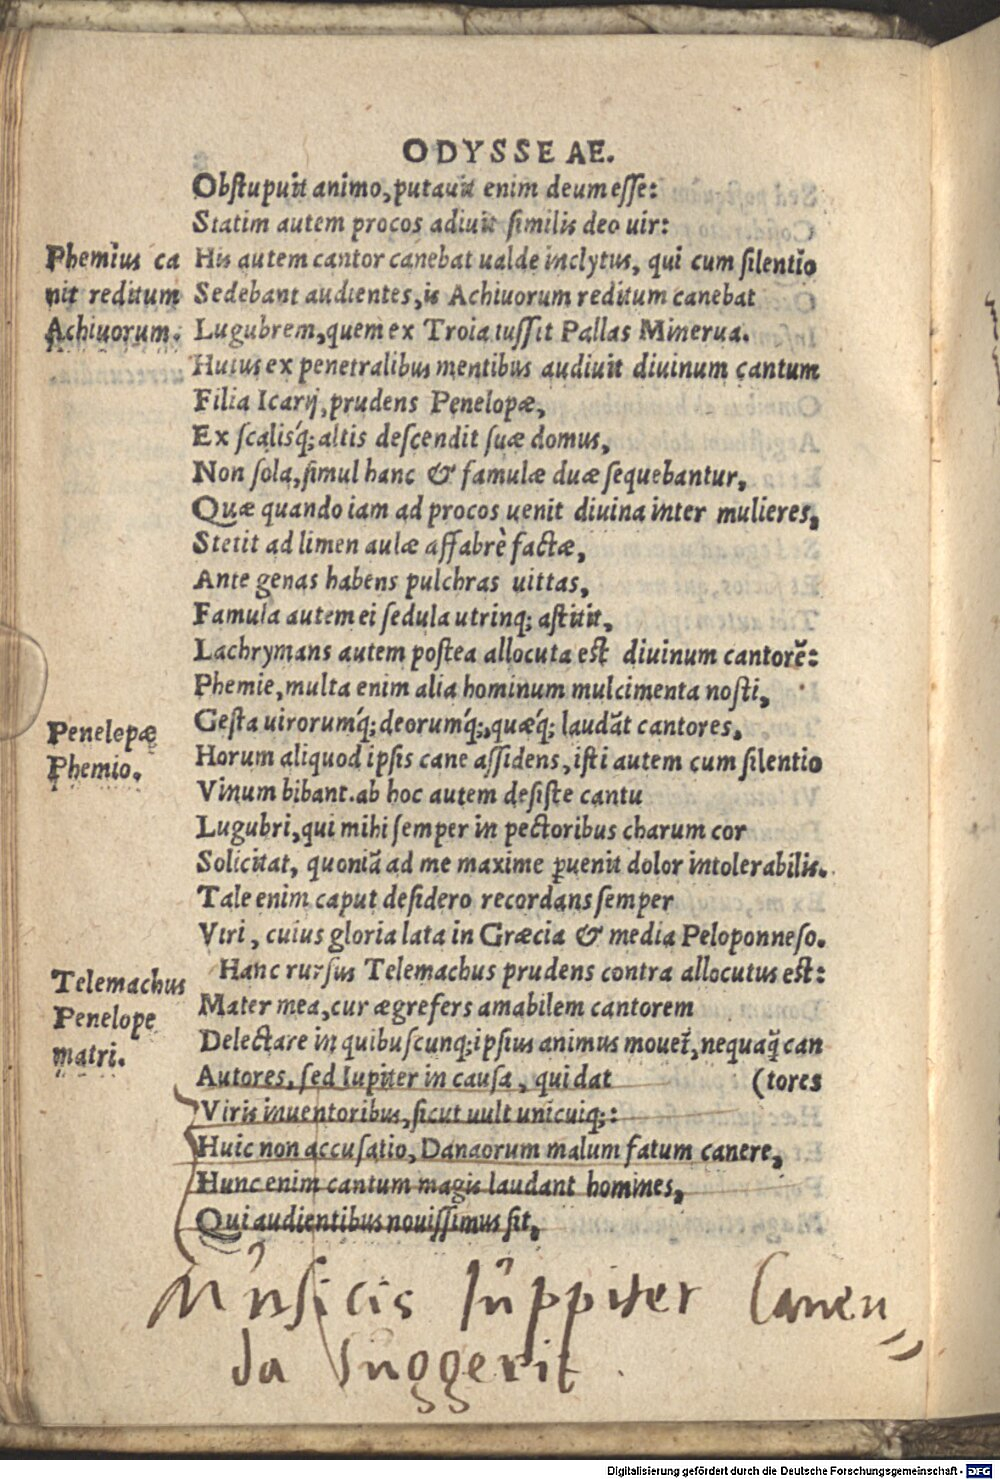 ODYSSEAE.
Obstupuit animo, putauit enim deum esse:
Statim autem procos adiuit similis deo uir:
Phemius ca
nit reditum
Achiuorum.
His autem cantor canebat ualde inclytus, qui cum silentio
Sedebant audientes, is Achiuorum reditum canebat
Lugubrem, quem ex Troia iussit Pallas Minerua.
Huius ex penetralibus mentibus audiuit diuinum cantum
Filia Icarij, prudens Penelopæ,
Ex scalisq́; altis descendit suæ domus,
Non sola, simul hanc & famulæ duæ sequebantur,
Quæ quando iam ad procos uenit diuina inter mulieres,
Stetit ad limen aulæ affabrè factæ,
Ante genas habens pulchras uittas,
Famula autem ei sedula utrinq; astitit,
Lachrymans autem postea allocuta est diuinum cantorē:
Phemie, multa enim alia hominum mulcimenta nosti,
Penelopæ
Phemio.
Gesta uirorumq́; deorumq́;, quæq́; laudāt cantores,
Horum aliquod ipsis cane assidens, isti autem cum silentio
Vinum bibant. ab hoc autem desiste cantu
Lugubri, qui mihi semper in pectoribus charum cor
Solicitat, quoniā ad me maxime ꝑuenit dolor intolerabilis.
Tale enim caput desidero recordans semper
Viri, cuius gloria lata in Græcia & media Peloponneso.
Telemachus
Penelope
matri.
Hanc rursus Telemachus prudens contra allocutus est:
Mater mea, cur ægrefers amabilem cantorem
Delectare in quibuscunq; ipsius animus mouet̄, nequaq̄ can
Autores, sed Iupiter in causa, qui dat (tores
Viris inuentoribus, sicut uult unicuiq;:
Huic non accusatio, Danaorum malum fatum canere,
Hunc enim cantum magis laudant homines,
Qui audientibus nouissimus sit,
Musicis Iuppiter Canen
da Suggerit.
Digitalisierung gefördert durch die Deutsche Forschungsgemeinschaft - DFG